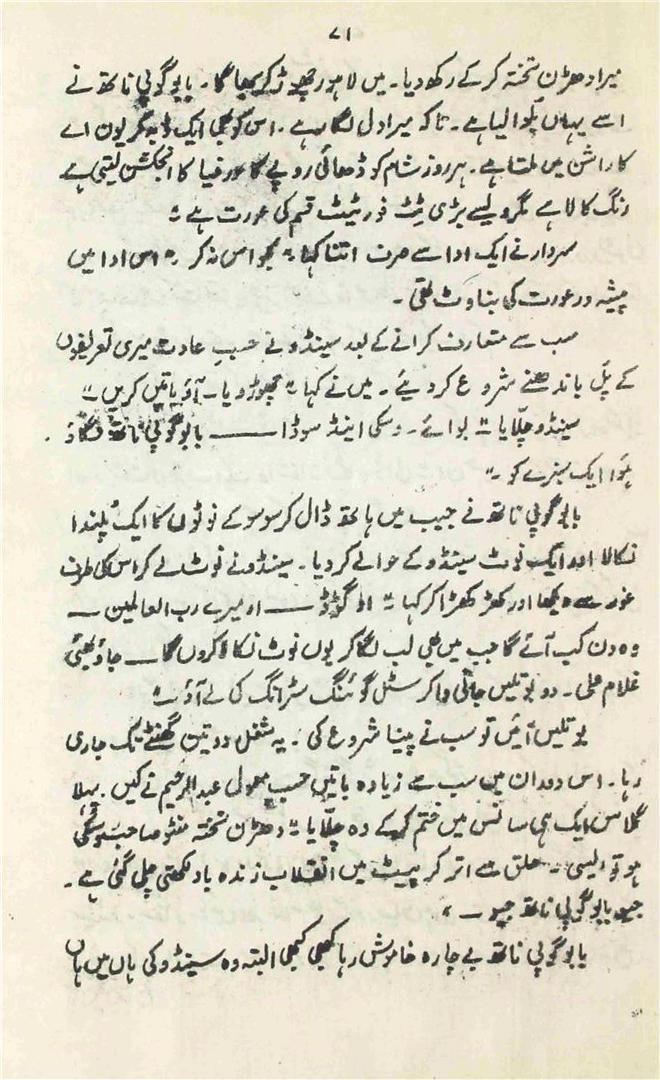 ۷۱
میرا دھڑن تختہ کر کے رکھ دیا۔ میں لاہور چھوڑ کر بھاگا۔ بابو گوپی ناتھ نے
اسے یہاں بلوا لیا ہے۔ تاکہ میرا دل لگا رہے۔ اس کو بھی ایک ڈبہ کریون اے
کا راشن میں ملتا ہے۔ ہر روز شام کو ڈھائی روپے کا مورفیا کا انجکشن لیتی ہے
رنگ کالا ہے مگر ویسے بڑی ٹِٹ فور ٹیٹ قسم کی عورت ہے“
سردار نے ایک ادا سے صرف اتنا کہا ”بجواس نہ کر۔“ اس ادا میں
پیشہ ور عورت کی بناوٹ تھی۔
سب سے متعارف کرانے کے بعد سینڈو نے حسبِ عادت میری تعریفوں
کے پُل باندھنے شروع کر دیئے۔ میں نے کہا ”چھوڑو یار۔ آؤ باتیں کریں“
سینڈو چلّایا ”بوائے۔ وسکی اینڈ سوڈا ـــــ بابو گوپی ناتھ لگاؤ
ہوا ایک سبزے کو۔“
بابو گوپی ناتھ نے جیب میں ہاتھ ڈال کر سو سو کے نوٹوں کا ایک پلندا
نکالا اور ایک نوٹ سینڈو کے حوالے کر دیا۔ سینڈو نے نوٹ لے کر اس کی طرف
غور سے دیکھا اور کھڑ کھڑا کر کہا ”او گوڈ ـــــ او میرے رب العالمین ــــ
وہ دن کب آئے گا جب میں بھی لب لگا کر یوں نوٹ نکالا کروں گا ــــ جاؤ بھئی
غلام علی۔ دو بوتلیں جانی واکر سٹل گوئنگ سٹرانگ کی لے آؤ“
بوتلیں آئیں تو سب نے پینا شروع کی۔ یہ شغل دو تین گھنٹے تک جاری
رہا۔ اس دوران میں سب سے زیادہ باتیں حسبِ معمول عبدالرحیم نے کیں۔ پہلا
گلاس ایک ہی سانس میں ختم کر کے وہ چلّایا ”دھڑن تختہ منٹو صاحب وسکی
ہو تو ایسی۔ حلق سے اتر کر پیٹ میں انقلاب زندہ باد لکھتی چلی گئی ہے۔
جیو بابو گوپی ناتھ جیو۔“
بابو گوپی ناتھ بے چارہ خاموش رہا کبھی کبھی البتہ وہ سینڈو کی ہاں میں ہاں